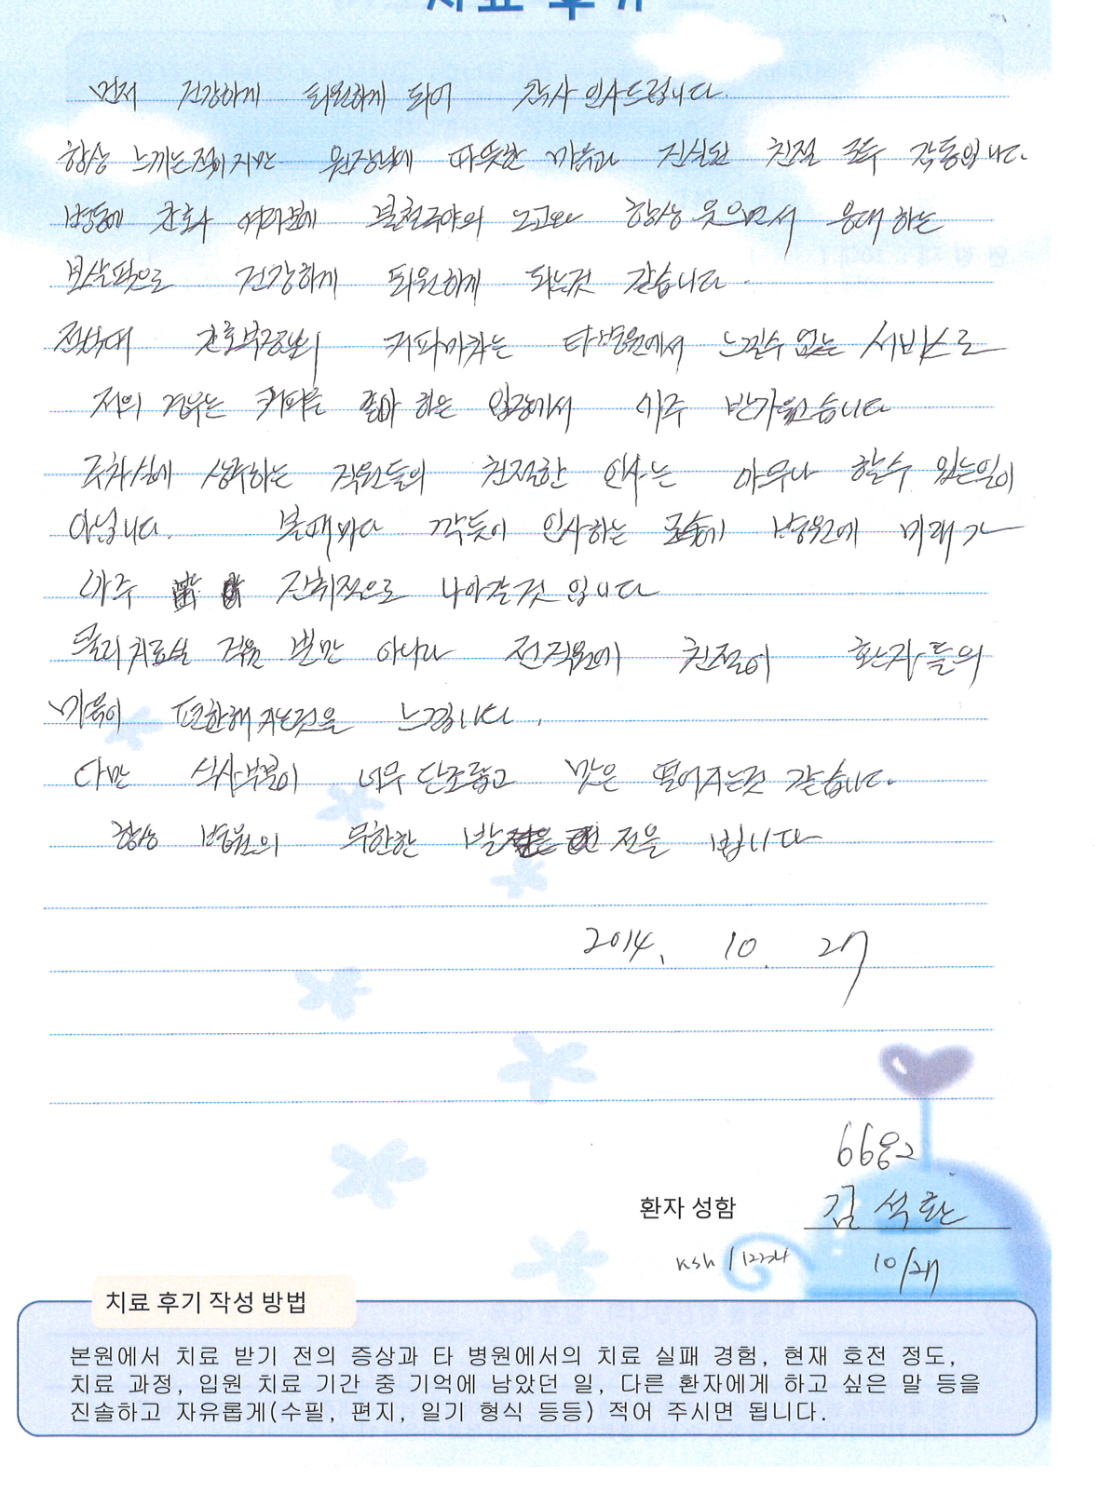 치료 후기
먼저 건강하게 퇴원하게 되어 감사 인사드립니다.
항상 느끼는점이지만 원장님에 따뜻한 마음과 진실된 친절 모두 감동입니다.
병동에 간호사 여러분에 불철주야의 노고와 항상 웃으면서 응대 하는
보살핌으로 건강하게 퇴원하게 되는것 같습니다.
간호부장님의 커피마차는 타병원에서 느낄수 없는 서비스로
저의 경우는 커피를 좋아 하는 입장에서 아주 반가웠습니다
주차실에 상주하는 직원들의 친절한 인사는 아무나 할수 있는일이
아닙니다. 볼때마다 깍듯이 인사하는 모습에 병원에 미래가
아주 진취적으로 나아갈것 입니다
물리치료실 직원 뿐만 아니라 전직원에 친절이 환자들의
마음이 편안해 지는것을 느낍니다.
다만 식사부분이 너무 단조롭고 맛은 떨어지는것 같습니다.
항상 병원의 무한한 발 전을 빕니다
2014. 10. 27
66호
환자 성함 김석환
ksh/12234 10/27
치료 후기 작성 방법
본원에서 치료 받기 전의 증상과 타 병원에서의 치료 실패 경험, 현재 호전 정도,
치료 과정, 입원 치료 기간 중 기억에 남았던 일, 다른 환자에게 하고 싶은 말 등을
진솔하고 자유롭게(수필, 편지, 일기 형식 등등) 적어 주시면 됩니다.